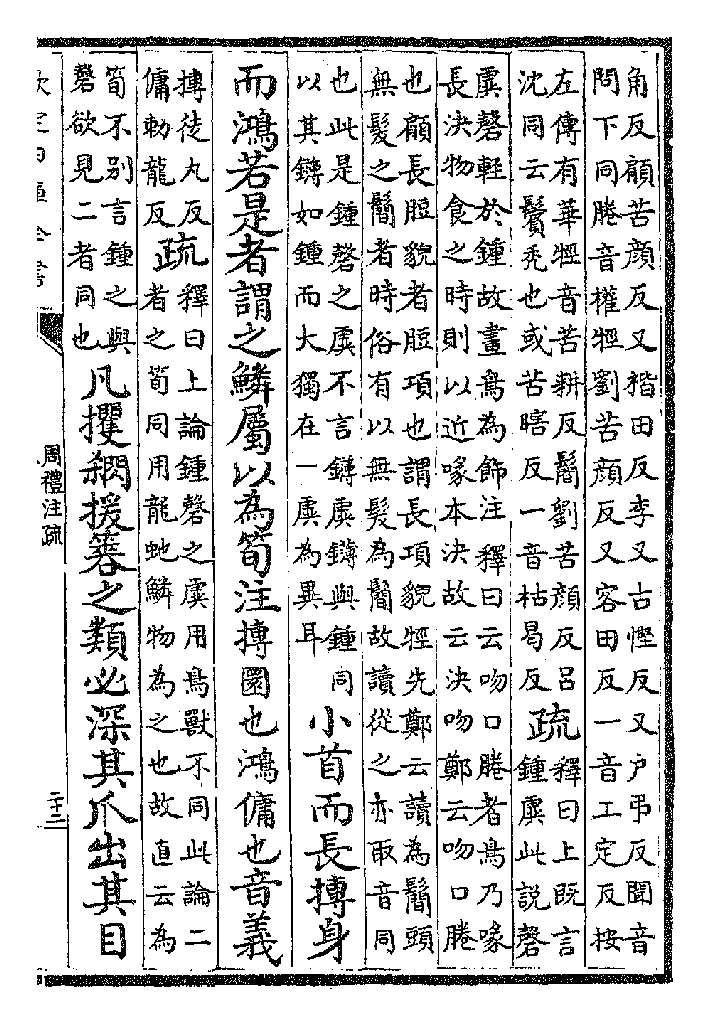 角反顧苦顔反又揩田反李又古慳反又戶弔反聞音
問下同䏰音權牼劉苦顔反又容田反一音工定反按
左傳有華牼音苦耕反鬜劉苦顔反呂
沈同云鬢禿也或苦瞎反一音枯曷反
疏
釋曰上既言
鍾虡此説磬
虡磬輕於鍾故畫鳥為飾注釋曰云吻口䏰者鳥乃喙
長決物食之時則以近喙本決故云決吻鄭云吻口䏰
也顧長脰貌者脰項也謂長項貌牼先鄭云讀為鬜頭
無髮之鬜者時俗有以無髮為鬜故讀從之亦取音同
也此是鍾磬之虡不言鎛虡鎛與鍾同
以其鎛如鍾而大獨在一虡為異耳
小首而長摶身
而鴻若是者謂之鱗屬以為筍注摶圜也鴻傭也音義
摶徒丸反
傭勅龍反
疏
釋曰上論鍾磬之虡用鳥獸不同此論二
者之筍同用龍虵鱗物為之也故直云為
筍不别言鍾之與
磬欲見二者同也
凡攫閷援簭之類必深其爪出其目
欽定四庫全書
周禮注疏
二十三